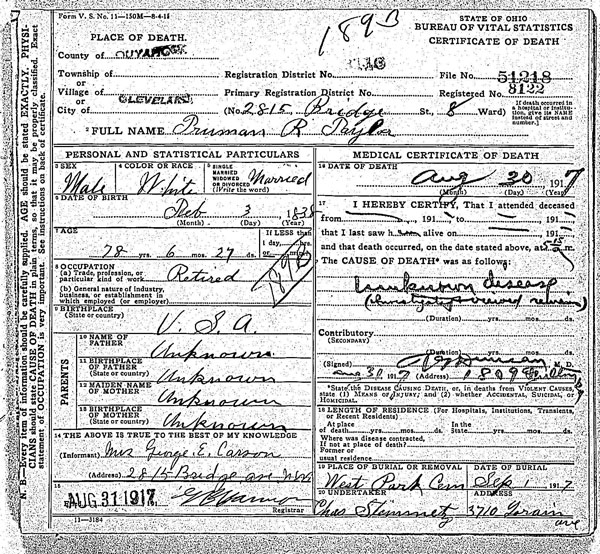 Form V. S. No. 11—150M—8-4-15
189 B
STATE OF OHIO
BUREAU OF VITAL STATISTICS
CERTIFICATE OF DEATH
PLACE OF DEATH.
County of CUYAHOGA
Township of
Registration District No.
File No. 51218
or
Village of
Primary Registration District No.
Registered No. 8122
or
City of CLEVELAND
(No. 2815 Bridge St., 8 Ward)
[If death occurred in a hospital or institution, give its NAME instead of street and number.]
2 FULL NAME Truman R Taylor
PERSONAL AND STATISTICAL PARTICULARS
3 SEX Male
4 COLOR OR RACE White
5 SINGLE MARRIED WIDOWED OR DIVORCED (Write the word) Married
6 DATE OF BIRTH
Feb 3, 1838
(Month) (Day) (Year)
7 AGE
78 yrs. 6 mos. 27 ds.
If LESS than 1 day, hrs. or min.
189 B
8 OCCUPATION
(a) Trade, profession, or particular kind of work Retired
(b) General nature of industry, business, or establishment in which employed (or employer)
9 BIRTHPLACE
(State or country) U. S. A.
PARENTS
10 NAME OF FATHER Unknown
11 BIRTHPLACE OF FATHER (State or country) Unknown
12 MAIDEN NAME OF MOTHER Unknown
13 BIRTHPLACE OF MOTHER (State or country) Unknown
14 THE ABOVE IS TRUE TO THE BEST OF MY KNOWLEDGE
(Informant) Mrs George E. Carson
(Address) 2815 Bridge ave NW
15
AUG 31 1917
Registrar
11—3184
MEDICAL CERTIFICATE OF DEATH
16 DATE OF DEATH
Aug 30 1917
(Month) (Day) (Year)
17 I HEREBY CERTIFY, That I attended deceased
from , 191 to , 191
that I last saw h alive on , 191
and that death occurred, on the date stated above, at m.
The CAUSE OF DEATH* was as follows:
Unknown disease
(Duration) yrs. mos. ds.
Contributory
(SECONDARY)
(Duration) yrs. mos. ds.
(Signed) M. D.
Aug 31 1917 (Address) 1809
*State the DISEASE CAUSING DEATH, or, in deaths from VIOLENT CAUSES, state (1) MEANS OF INJURY; and (2) whether ACCIDENTAL, SUICIDAL, or HOMICIDAL.
18 LENGTH OF RESIDENCE (For Hospitals, Institutions, Transients, or Recent Residents)
At place of death yrs. mos. ds. In the State yrs. mos. ds.
Where was disease contracted, If not at place of death?
Former or usual residence
19 PLACE OF BURIAL OR REMOVAL
West Park Cem
DATE OF BURIAL
Sep 1 1917
20 UNDERTAKER
ADDRESS
3710 Lorain ave
N. B.—Every item of information should be carefully supplied. AGE should be stated EXACTLY. PHYSICIANS should state CAUSE OF DEATH in plain terms, so that it may be properly classified. Exact statement of OCCUPATION is very important. See instructions on back of certificate.